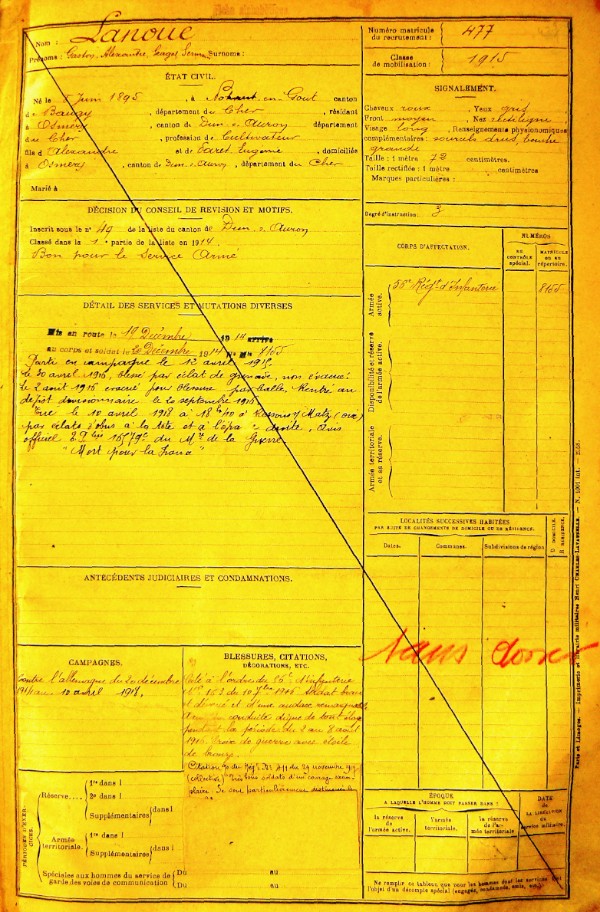 Nom : Lanoue
Prénoms : Gaston, Alexandre, Surnoms :
Numéro matricule du recrutement : 477
Classe de mobilisation : 1915
ÉTAT CIVIL.
Né le 5 Juin 1895, à en Gout canton
de Baugy, département du Cher, résidant
à Osmery, canton de Dun s. Auron département
du Cher, profession de Cultivateur
fils d'Alexandre et de Eugénie, domiciliés
à Osmery, canton de Dun s. Auron, département du Cher
Marié à
SIGNALEMENT.
Cheveux roux Yeux gris
Front moyen Nez rectiligne
Visage long Renseignements physionomiques
complémentaires : sourcils bouche
grande
Taille : 1 mètre 72 centimètres.
Taille rectifiée : 1 mètre centimètres
Marques particulières :
Degré d'instruction : 3
DÉCISION DU CONSEIL DE REVISION ET MOTIFS.
Inscrit sous le n° 49 de la liste du canton de Dun s. Auron
Classé dans la 1e partie de la liste en 1914.
Bon pour le Service Armé
DÉTAIL DES SERVICES ET MUTATIONS DIVERSES
Mis en route le 19 Décembre 1914 arrivé
au corps et soldat le 20 Décembre 1914 8165
Parti en campagne le avril 191
Le 30 avril 1916, blessé par éclat de grenade, non évacué
Le 2 août 1916 évacué pour blessure par balle. Rentré au
dépôt divisionnaire le 20 septembre 1916
Tué le 10 avril 1918 à 18h40 à Ressons s/ Matz (Oise)
par éclats d'obus à la tête et à l'épaule droite. Avis
officiel du M. de la Guerre
"Mort pour la France"
CORPS D'AFFECTATION.
NUMÉROS
AU CONTRÔLE spécial.
MATRICULE OU AU RÉPERTOIRE.
Armée active.
56e Régt d'Infanterie 8165
Disponibilité et réserve de l'armée active.
Armée territoriale et sa réserve.
LOCALITÉS SUCCESSIVES HABITÉES
PAR SUITE DE CHANGEMENTS DE DOMICILE OU DE RÉSIDENCE.
Dates. Communes. Subdivisions de région D. DOMICILE. R. RÉSIDENCE.
ANTÉCÉDENTS JUDICIAIRES ET CONDAMNATIONS.
sans dossier
CAMPAGNES.
Contre l'Allemagne du 20 décembre
1914 au 10 avril 1918.
BLESSURES, CITATIONS, DÉCORATIONS, ETC.
Cité à l'ordre du 56e d'infanterie
N° 163 du 10 7bre 1916 Soldat brave
et dévoué et d'une audace remarquable
A eu une conduite digne de tout éloge
pendant la période du 2 au 8 août
1916. Croix de guerre avec étoile
de bronze.
Citation du Régt. du 24 novembre
(collective) "Très bons soldats d'un courage exemplaire
Se sont particulièrement
PÉRIODES D'EXERCICES.
Réserve....
1re dans l
2e dans l
Supplémentaires dans l
Armée territoriale.
1re dans l
Supplémentaires dans l
Spéciales aux hommes du service de garde des voies de communication
Du au
Du au
ÉPOQUE
A LAQUELLE L'HOMME DOIT PASSER DANS :
la réserve de l'armée active.
l'armée territoriale.
la réserve de l'armée territoriale
DATE DE LA LIBÉRATION DU service militaire.
Ne remplir ce tableau que pour les hommes dont les services font
l'objet d'un décompte spécial (engagés, condamnés, omis, etc.)
Paris et Limoges. — Imprimerie et librairie militaires Henri CHARLES-LAVAUZELLE.